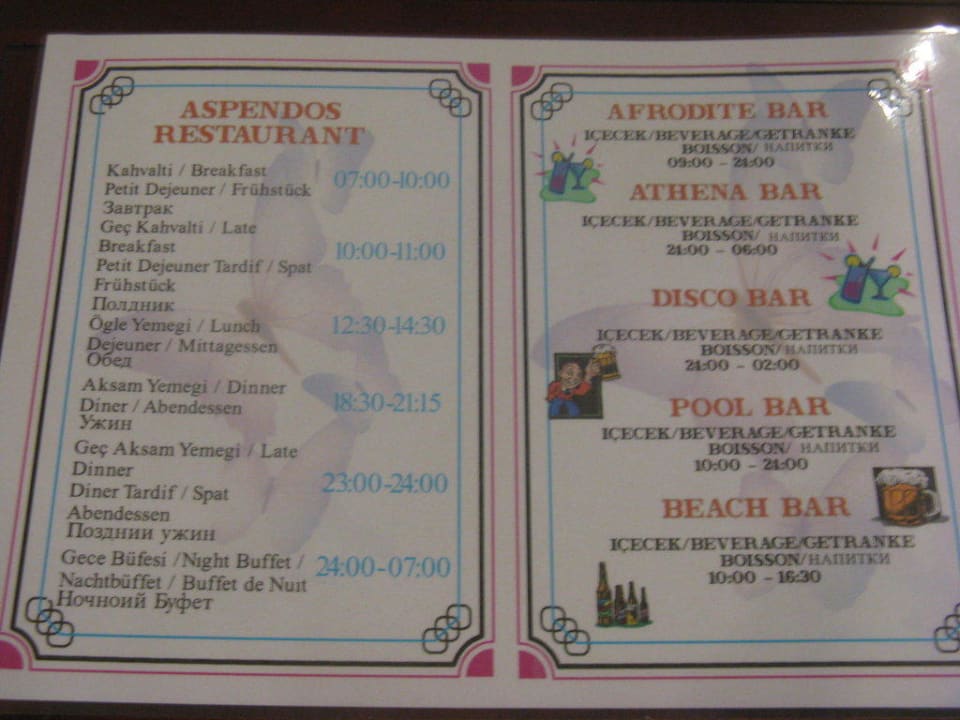 ASPENDOS
RESTAURANT
Kahvalti / Breakfast
Petit Dejeuner / Frühstück
Завтрак
07:00-10:00
Geç Kahvalti / Late
Breakfast
Petit Dejeuner Tardif / Spat
Frühstück
Полдник
10:00-11:00
Ögle Yemegi / Lunch
Dejeuner / Mittagessen
Обед
12:30-14:30
Aksam Yemegi / Dinner
Diner / Abendessen
Ужин
18:30-21:15
Geç Aksam Yemegi / Late
Dinner
Diner Tardif / Spat
Abendessen
Позднии ужин
23:00-24:00
Gece Büfesi /Night Buffet /
Nachtbüffet / Buffet de Nuit
Ночноий Буфет
24:00-07:00
AFRODITE BAR
IÇECEK/BEVERAGE/GETRANKE
BOISSON/ НАПИТКИ
09:00 - 24:00
ATHENA BAR
IÇECEK/BEVERAGE/GETRANKE
BOISSON/ НАПИТКИ
24:00 - 06:00
DISCO BAR
IÇECEK/BEVERAGE/GETRANKE
BOISSON/ НАПИТКИ
24:00 - 02:00
POOL BAR
IÇECEK/BEVERAGE/GETRANKE
BOISSON/ НАПИТКИ
10:00 - 24:00
BEACH BAR
IÇECEK/BEVERAGE/GETRANKE
BOISSON/ НАПИТКИ
10:00 - 16:30